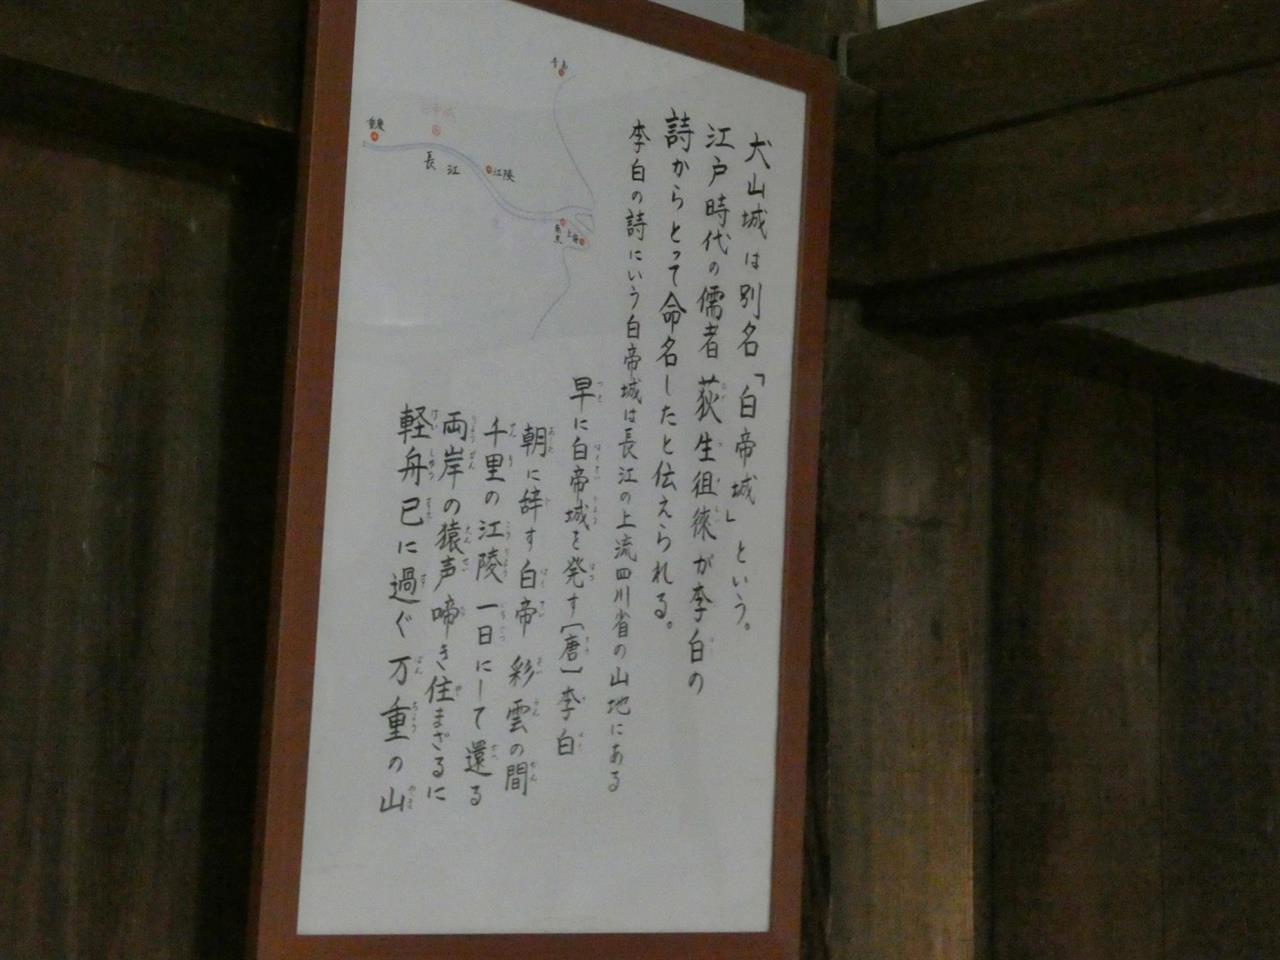 犬山城は別名「白帝城」という。
江戸時代の儒者 荻生徂徠が李白の
詩からとって命名したと伝えられる。
李白の詩にいう白帝城は長江の上流四川省の山地にある
早に白帝城を発す[唐]李白
朝に辞す白帝 彩雲の間
千里の江陵 一日にして還る
両岸の猿声啼き住まざるに
軽舟已に過ぐ万重の山
重慶
長江
江陵
上海